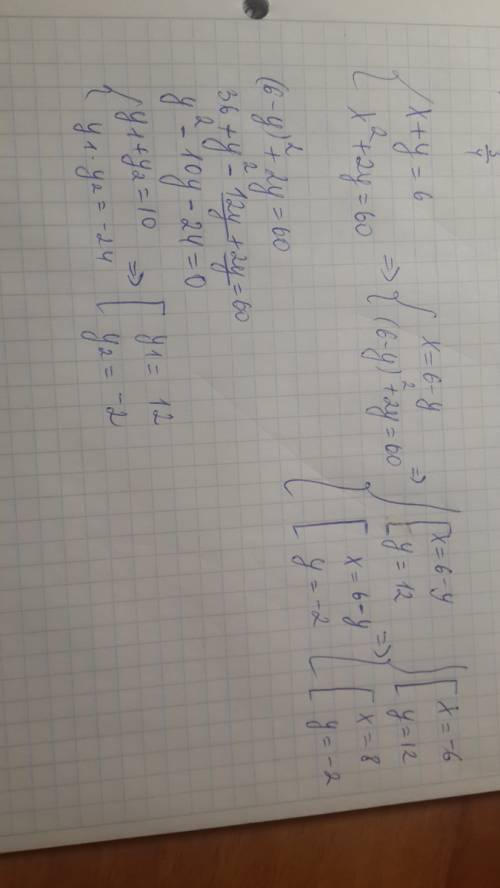 x + y = 6
x² + 2y = 60
=> x = 6 - y
(6 - y)² + 2y = 60
=> x = 6 - y
y = 12
x = 6 - y
y = -2
=> x = -6
y = 12
x = 8
y = -2
(6 - y)² + 2y = 60
36 + y² - 12y + 2y = 60
y² - 10y - 24 = 0
y₁ + y₂ = 10
y₁ · y₂ = -24
=> y₁ = 12
y₂ = -2